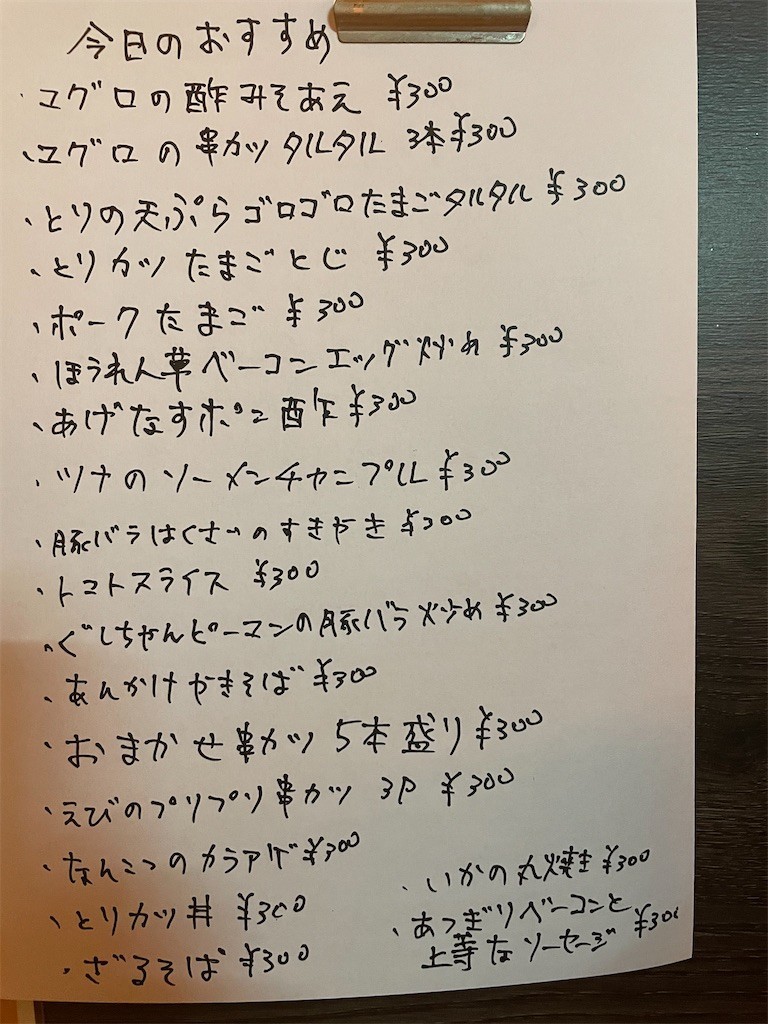 今日のおすすめ
・マグロの酢みそあえ ¥300
・マグロの串カツタルタル 3本¥300
・とりの天ぷらゴロゴロたまごタルタル ¥300
・とりカツたまごとじ ¥300
・ポークたまご ¥300
・ほうれん草ベーコンエッグ炒め ¥300
・あげなすポン酢 ¥300
・ツナのソーメンチャンプル ¥300
・豚バラはくさいのすきやき ¥300
・トマトスライス ¥300
・ぐしちゃんピーマンの豚バラ炒め ¥300
・あんかけやきそば ¥300
・おまかせ串カツ 5本盛り ¥300
・えびのプリプリ串カツ 3P ¥300
・なんこつのカラアゲ ¥300
・とりカツ丼 ¥300
・ざるそば ¥300
・いかの丸焼き ¥300
・あつぎりベーコンと
上等なソーセージ ¥300